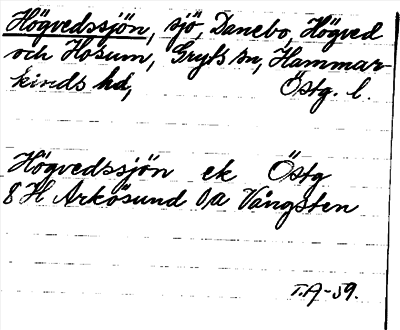 Högvedssjön, sjö, Danebo, Högved
och Hosum, Gryts sn, Hammar-
kinds hd, Östg. l.
Högvedssjön ek Östg
8 H Arkösund Va Vångsten
T.A-59.